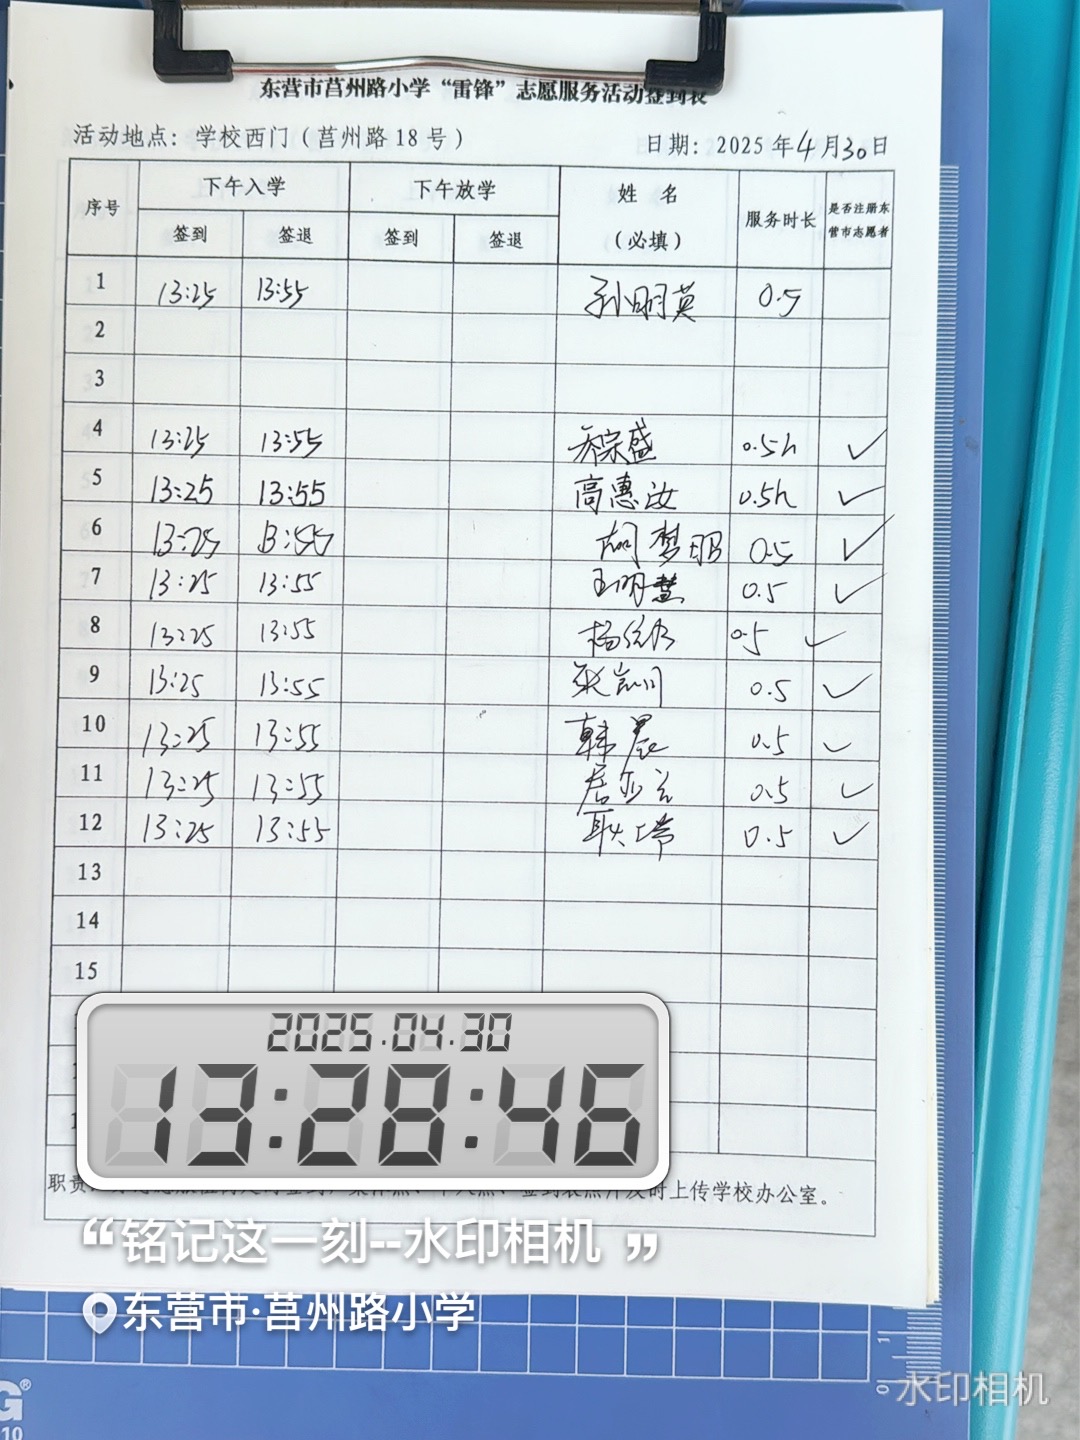 东营市莒州路小学“雷锋”志愿服务活动签到表
活动地点：学校西门（莒州路18号） 日期：2025年4月30日
序号 下午入学 下午放学 姓 名 （必填） 服务时长 是否注册东营市志愿者
签到 签退 签到 签退
1 13:25 13:55 孙明英 0.5
2
3
4 13:25 13:55 宗盛 0.5h ✓
5 13:25 13:55 高惠汝 0.5h ✓
6 13:25 13:55 胡梦 0.5 ✓
7 13:25 13:55 王明慧 0.5 ✓
8 13:25 13:55 杨 0.5 ✓
9 13:25 13:55 0.5 ✓
10 13:25 13:55 韩晨 0.5 ✓
11 13:25 13:55 0.5 ✓
12 13:25 13:55 耿 0.5 ✓
13
14
15
2025.04.30
13:28:46
职责 上传学校办公室。
“铭记这一刻--水印相机”
东营市·莒州路小学
水印相机
G®
10
11
0